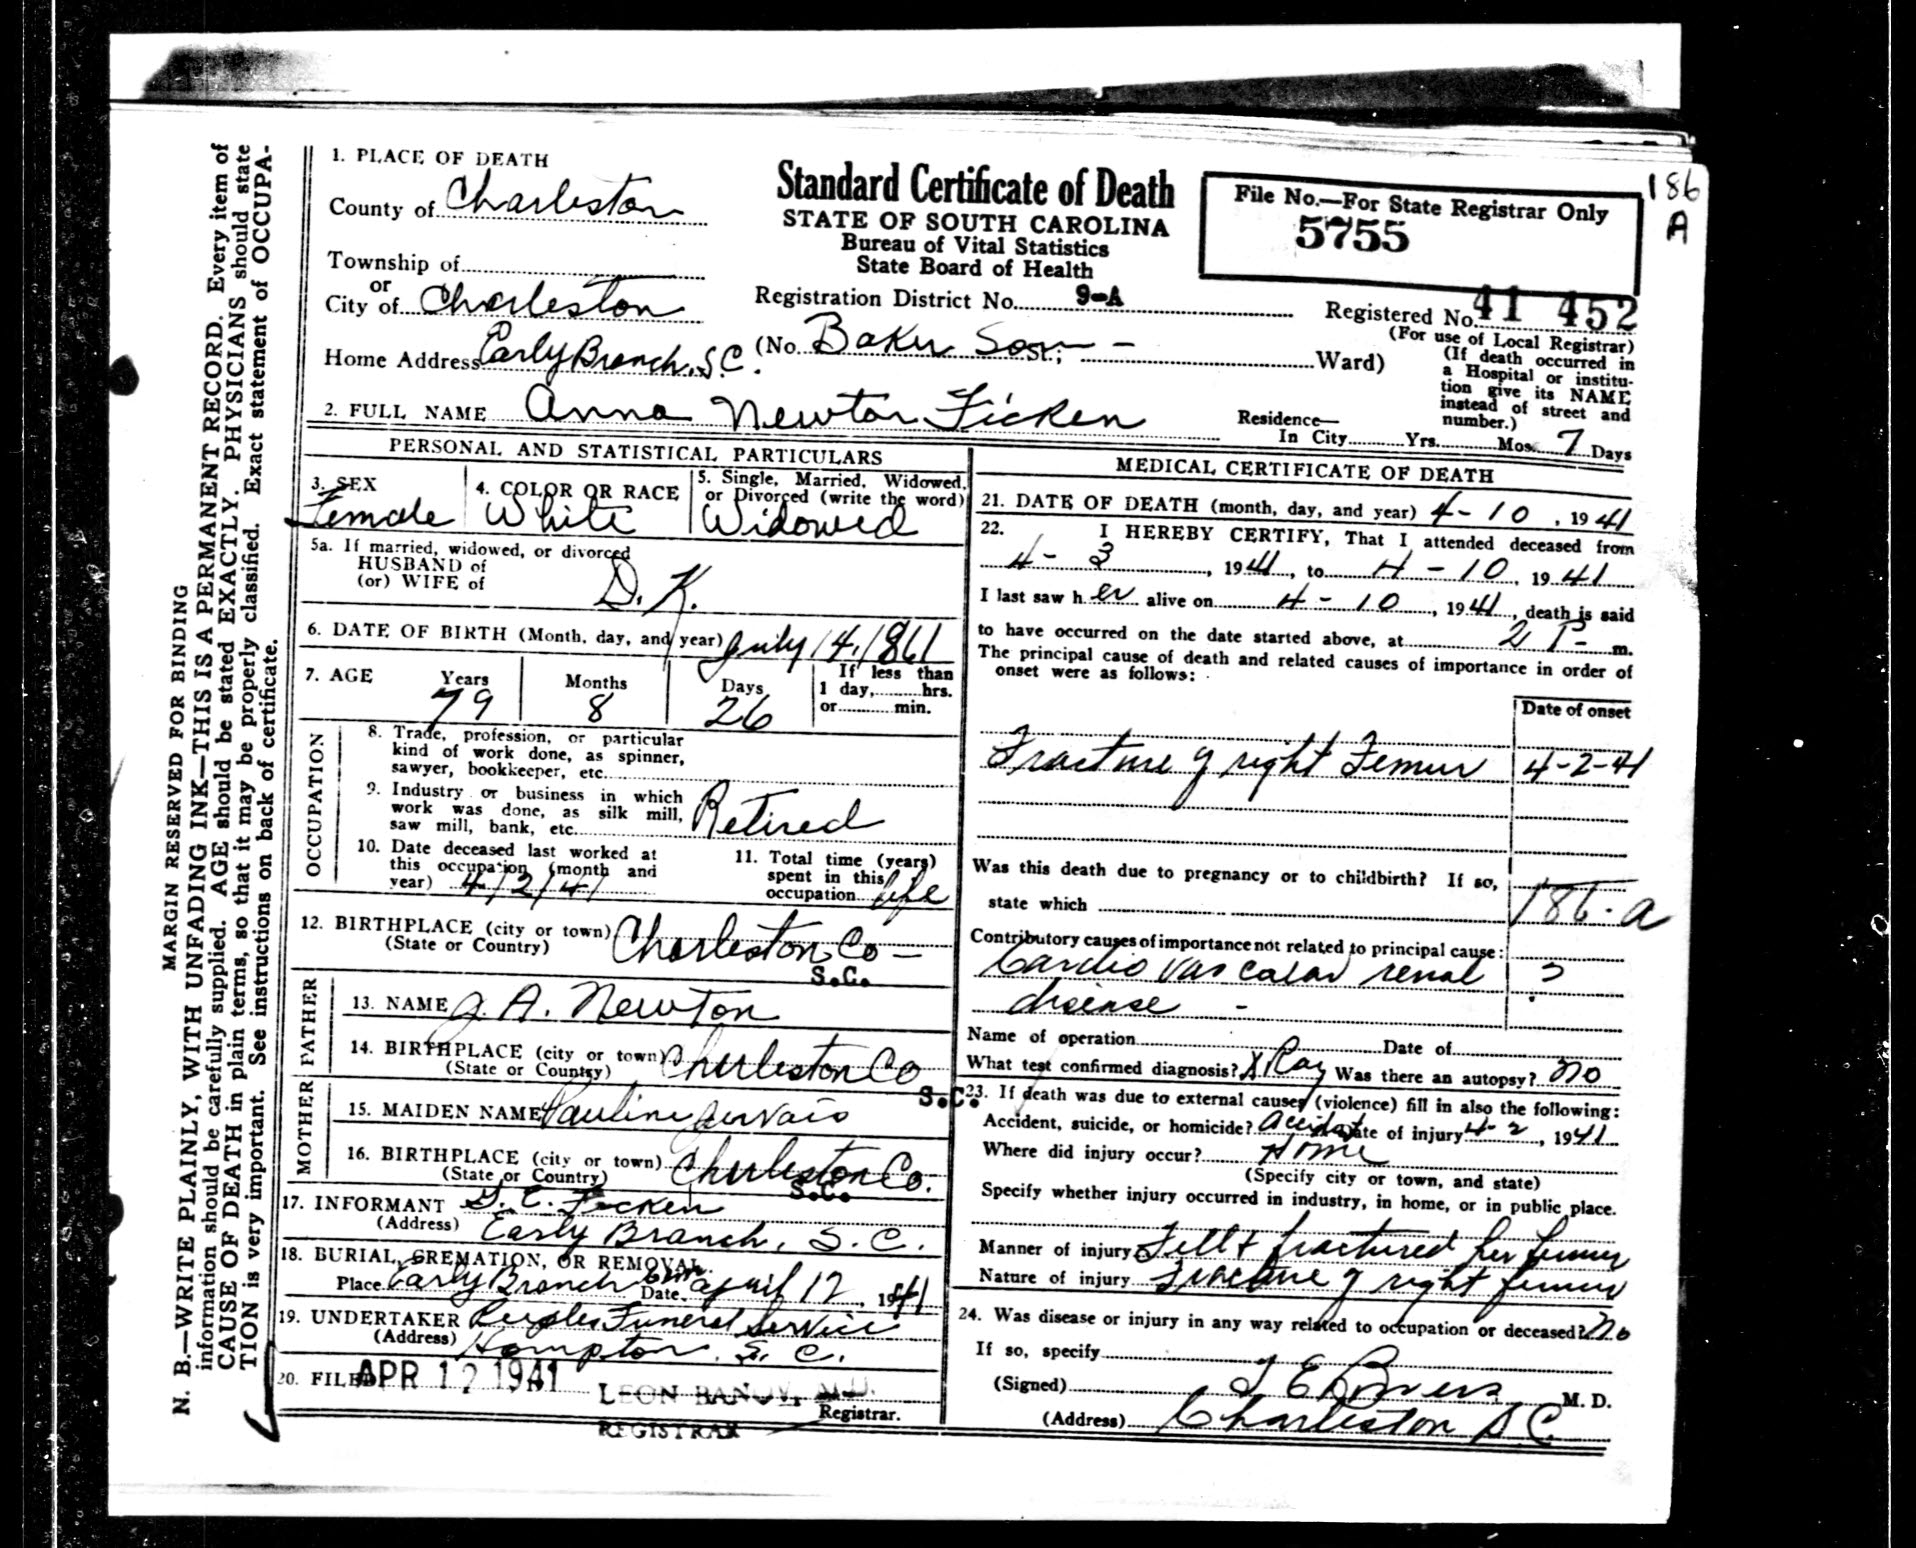 MARGIN RESERVED FOR BINDING
N. B.—WRITE PLAINLY, WITH UNFADING INK—THIS IS A PERMANENT RECORD. Every item of
information should be carefully supplied. AGE should be stated EXACTLY. PHYSICIANS should state
CAUSE OF DEATH in plain terms, so that it may be properly classified. Exact statement of OCCUPA-
TION is very important. See instructions on back of certificate.
186
A
1. PLACE OF DEATH
County of Charleston
Township of
or
City of Charleston
Home Address Early Branch, S.C.
Standard Certificate of Death
STATE OF SOUTH CAROLINA
Bureau of Vital Statistics
State Board of Health
Registration District No. 9-A
(No. Baker San St.; — Ward)
File No.—For State Registrar Only
5755
Registered No. 41 452
(For use of Local Registrar)
(If death occurred in
a Hospital or institu-
tion give its NAME
instead of street and
number.)
2. FULL NAME Anna Newton Ficken
Residence—
In City Yrs. Mos. 7 Days
PERSONAL AND STATISTICAL PARTICULARS
3. SEX
Female
4. COLOR OR RACE
White
5. Single, Married, Widowed,
or Divorced (write the word)
Widowed
5a. If married, widowed, or divorced
HUSBAND of
(or) WIFE of D. K.
6. DATE OF BIRTH (Month, day, and year) July 14, 1861
7. AGE Years 79 Months 8 Days 26
If less than
1 day, hrs.
or min.
OCCUPATION
8. Trade, profession, or particular
kind of work done, as spinner,
sawyer, bookkeeper, etc.
9. Industry or business in which
work was done, as silk mill,
saw mill, bank, etc. Retired
10. Date deceased last worked at
this occupation (month and
year) 4/2/41
11. Total time (years)
spent in this
occupation life
12. BIRTHPLACE (city or town) Charleston Co —
(State or Country) S.C.
FATHER
13. NAME J. A. Newton
14. BIRTHPLACE (city or town) Charleston Co
(State or Country) S.C.
MOTHER
15. MAIDEN NAME Pauline Gervais
16. BIRTHPLACE (city or town) Charleston Co.
(State or Country) S.C.
17. INFORMANT Ficken
(Address) Early Branch, S. C.
18. BURIAL, CREMATION, OR REMOVAL
Place Early Branch Cem Date April 12, 1941
19. UNDERTAKER Peeples Funeral Service
(Address) Hampton, S. C.
20. FILED APR 12 1941 LEON BANOV, M.D.
Registrar.
REGISTRAR
MEDICAL CERTIFICATE OF DEATH
21. DATE OF DEATH (month, day, and year) 4-10, 1941
22. I HEREBY CERTIFY, That I attended deceased from
4-3, 1941, to 4-10, 1941
I last saw her alive on 4-10, 1941, death is said
to have occurred on the date started above, at 2 P- m.
The principal cause of death and related causes of importance in order of
onset were as follows:
Date of onset
Fracture of right Femur 4-2-41
Was this death due to pregnancy or to childbirth? If so,
state which
186-a
Contributory causes of importance not related to principal cause:
Cardio vascular renal ?
disease -
Name of operation Date of
What test confirmed diagnosis? X Ray Was there an autopsy? no
23. If death was due to external causes (violence) fill in also the following:
Accident, suicide, or homicide? Accident Date of injury 4-2, 1941
Where did injury occur? Home
(Specify city or town, and state)
Specify whether injury occurred in industry, in home, or in public place.
Manner of injury Fell & fractured her femur
Nature of injury Fracture of right femur
24. Was disease or injury in any way related to occupation or deceased? No
If so, specify
(Signed) Bowers M. D.
(Address) Charleston S.C.